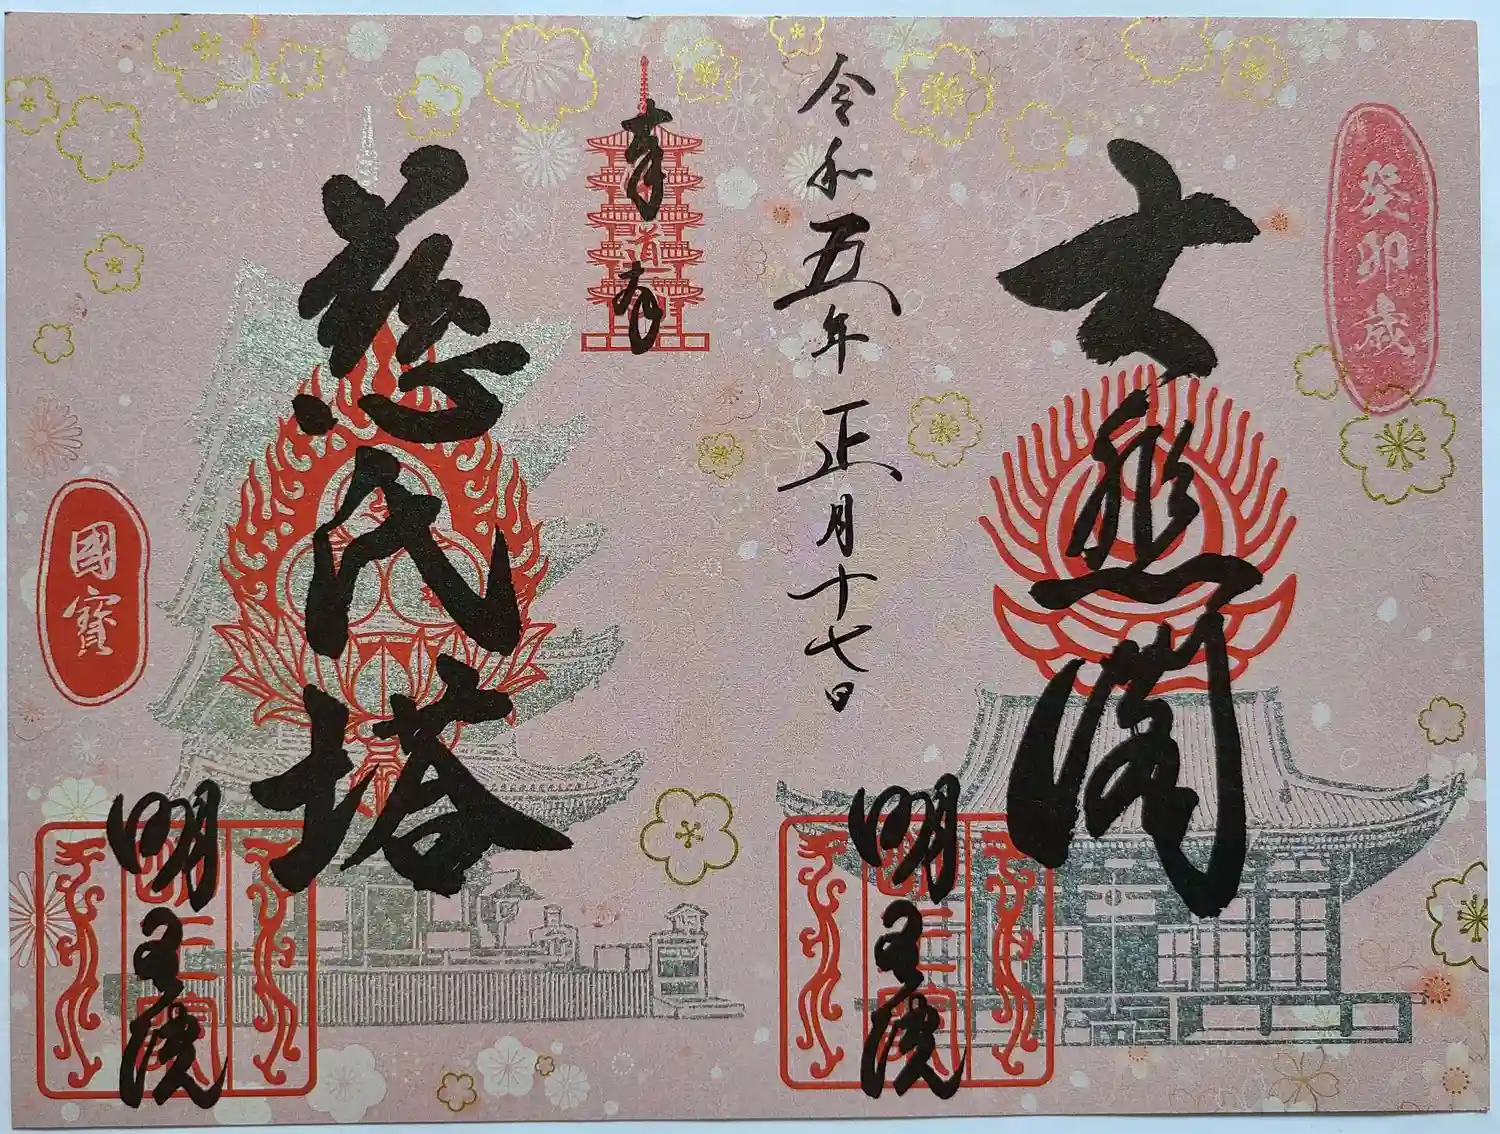 癸卯歳
大悲閣
明王院
令和五年正月十七日
奉拝
慈氏塔
明王院
國寶